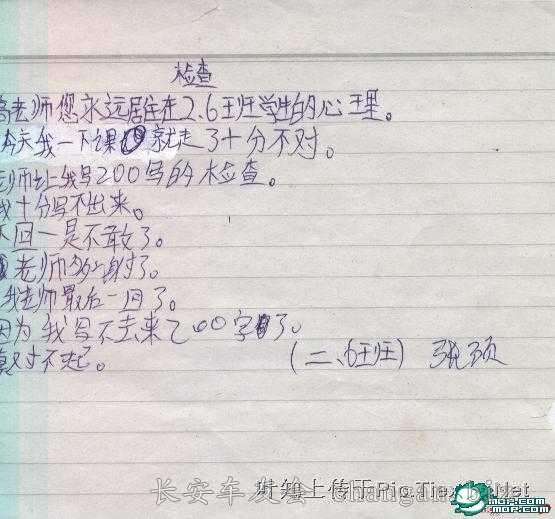 检查
高老师您永远居住在2.6班学生的心理。
今天我一下课就走了十分不对。
老师让我写200写的检查。
我十分写不出来。
下回一是不敢了。
老师多谢了。
我老师最后一回了。
因为我写不去来200字了。
真对不起。
(二、6班) 张
时知上传于Pig.Tie Net
长安车友会 changan
PCPOP.COM